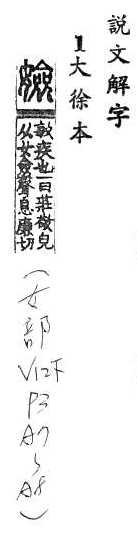 說文解字
1大徐本
嬐
敏疾也一曰莊敬皃
从女僉聲息廉切
(女部 V12下 P3 A7 ~ A8)